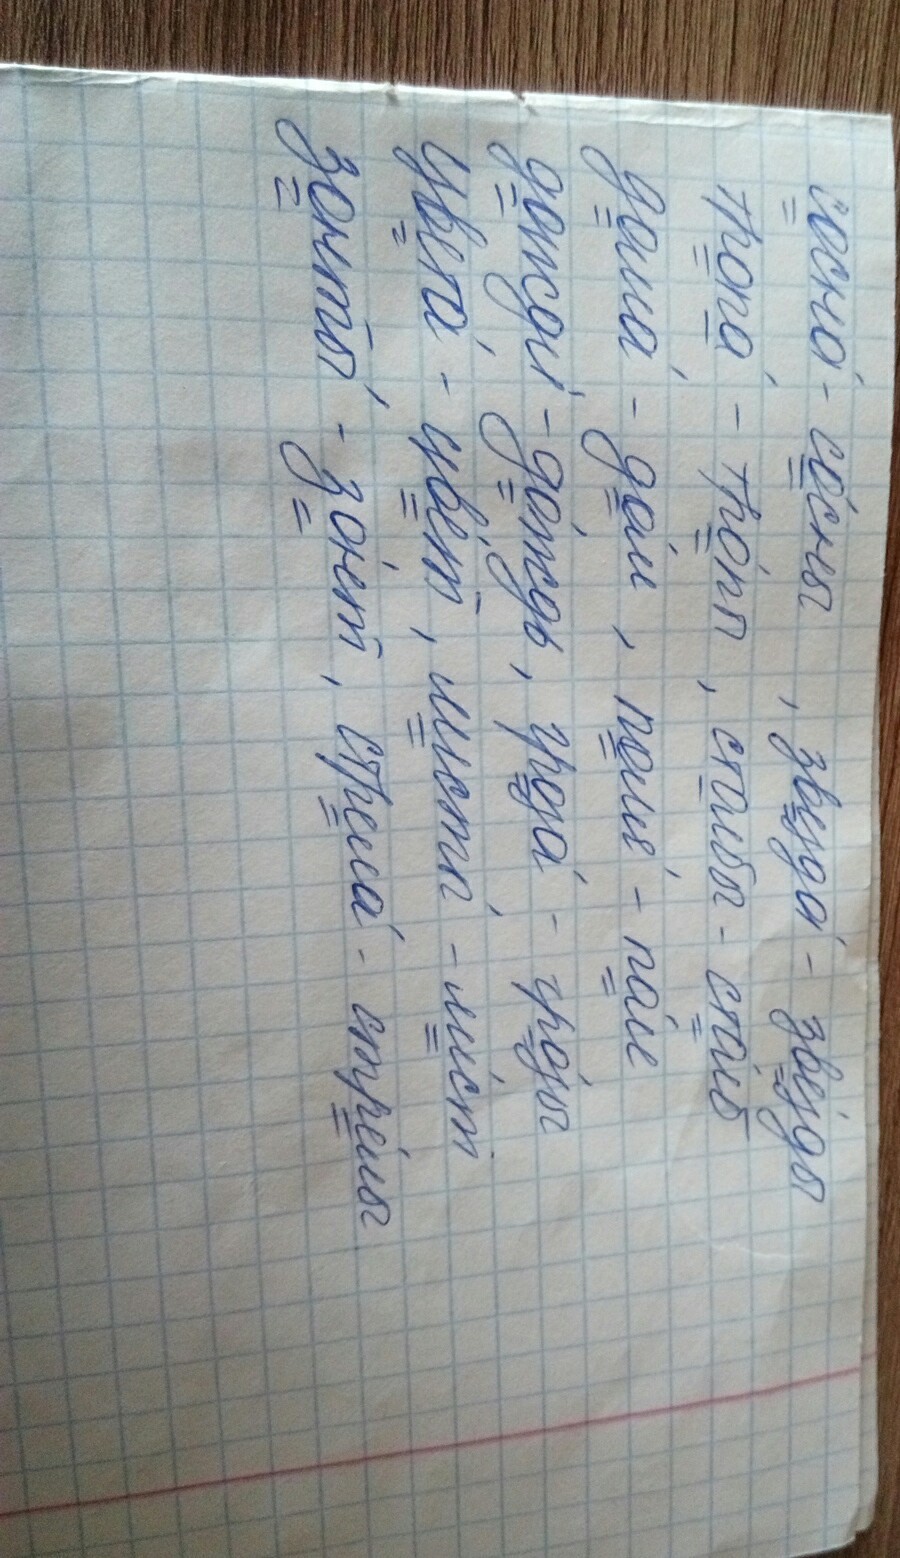 сосна́ - со́сны, звезда́ - звёзды
тропа́ - тро́п, столбы - столб
дома́ - до́м, поля́ - по́ле
дожди́ - до́ждь, гроза́ - гро́зы
цвета́ - цве́т, листы́ - ли́ст
зонты́ - зо́нт, стрела́ - стре́лы